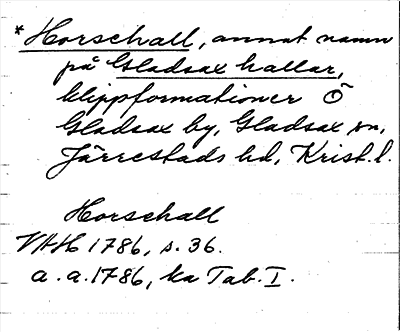 *Horschall, annat namn
på Gladsax hallar,
klippformationer Ö
Gladsax by, Gladsax sn,
Järrestads hd, Krist. l.
Horschall
VAH 1786, s. 36.
a.a. 1786, ka Tab. I.